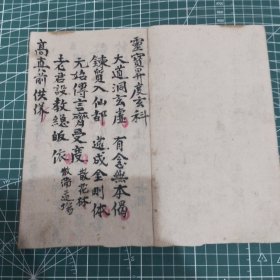 靈寶昇度玄科
大道洞玄虛 有念無不偈
鍊質入仙都 遂成金剛体
元始傳言齊受度 散花林
老君設教總皈依 散滿道場
高真前供养